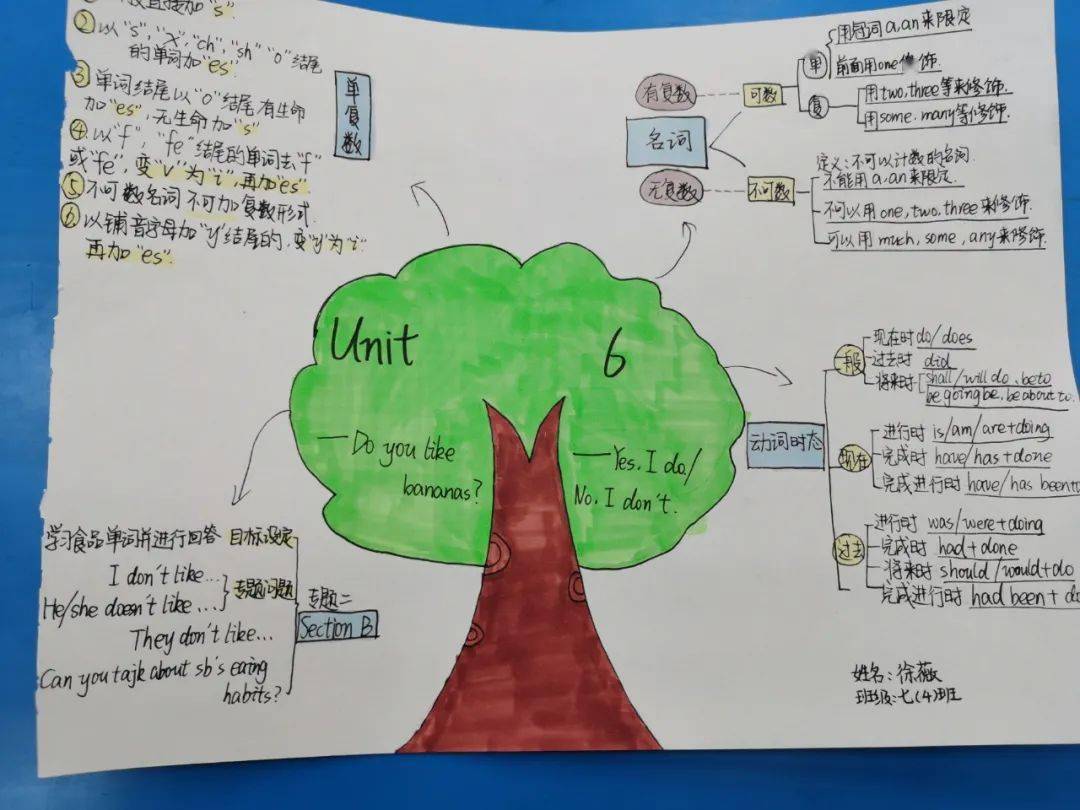 直接加"s".
② 以"s","x","ch","sh""o"结尾
的单词加"es".
③ 单词结尾以"o"结尾,有生命
加"es",无生命加"s"
④ 以"f","fe"结尾的单词去"f"
或"fe",变"v"为"i",再加"es".
⑤ 不可数名词 不可加复数形式.
⑥ 以辅音字母加"y"结尾的,变"y"为"i"
再加"es".
单复数
有复数
名词
无复数
可数
单
用冠词a,an来限定
前面用one修饰.
复
用two,three等来修饰.
用some.many等修饰.
不可数
定义:不可以计数的名词.
不能用a,an来限定.
不可以用one,two,three来修饰.
可以用much,some,any来修饰.
Unit 6
—Do you like
bananas?
—Yes. I do/
No. I don't.
动词时态
一般
现在时 do/does
过去时 did
将来时 shall/will do、be to
be going be、be about to.
现在
进行时 is/am/are+doing
完成时 have/has+done
完成进行时 have/has been
过去
进行时 was/were+doing
完成时 had+done
将来时 should/would+do
完成进行时 had been+
学习食品单词并进行回答 目标设定
I don't like...
He/she doesn't like...
They don't like...
Can you tajk about sb's eaing
habits?
专题问题
专题二
Section B
姓名:徐薇
班级:七(4)班